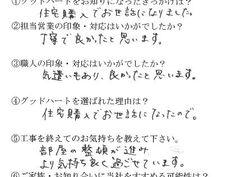 ①グッドハートをお知りになったきっかけは？
住宅購入でお世話になりました。
②担当営業の印象・対応はいかがでしたか？
丁寧で良かったと思います。
③職人の印象・対応はいかがでしたか？
気遣いもあり、良かったと思います。
④グッドハートを選ばれた理由は？
住宅購入でお世話になったので。
⑤工事を終えてのお気持ちを教えて下さい。
部屋の整頓が進み
より気持ち良く過ごせています。
⑥ご家族・お知り合いに当社をすすめる可能性は？